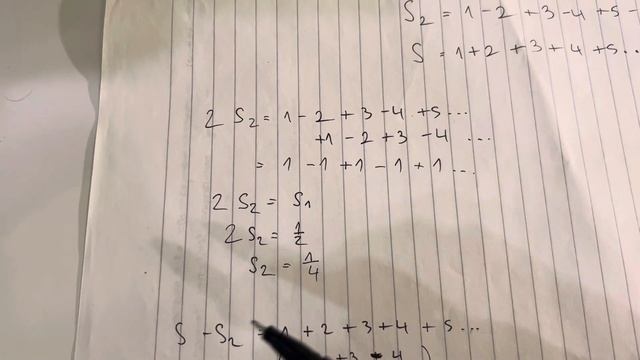 S₂ = 1 - 2 + 3 - 4 + 5 -
S = 1 + 2 + 3 + 4 + 5 ...
2 S₂ = 1 - 2 + 3 - 4 + 5 ...
+1 - 2 + 3 - 4 ...
= 1 - 1 + 1 - 1 + 1 ...
2 S₂ = S₁
2 S₂ = 1/2
S₂ = 1/4
S - S₂ = 1 + 2 + 3 + 4 + 5 ...
+ 3 - 4 )